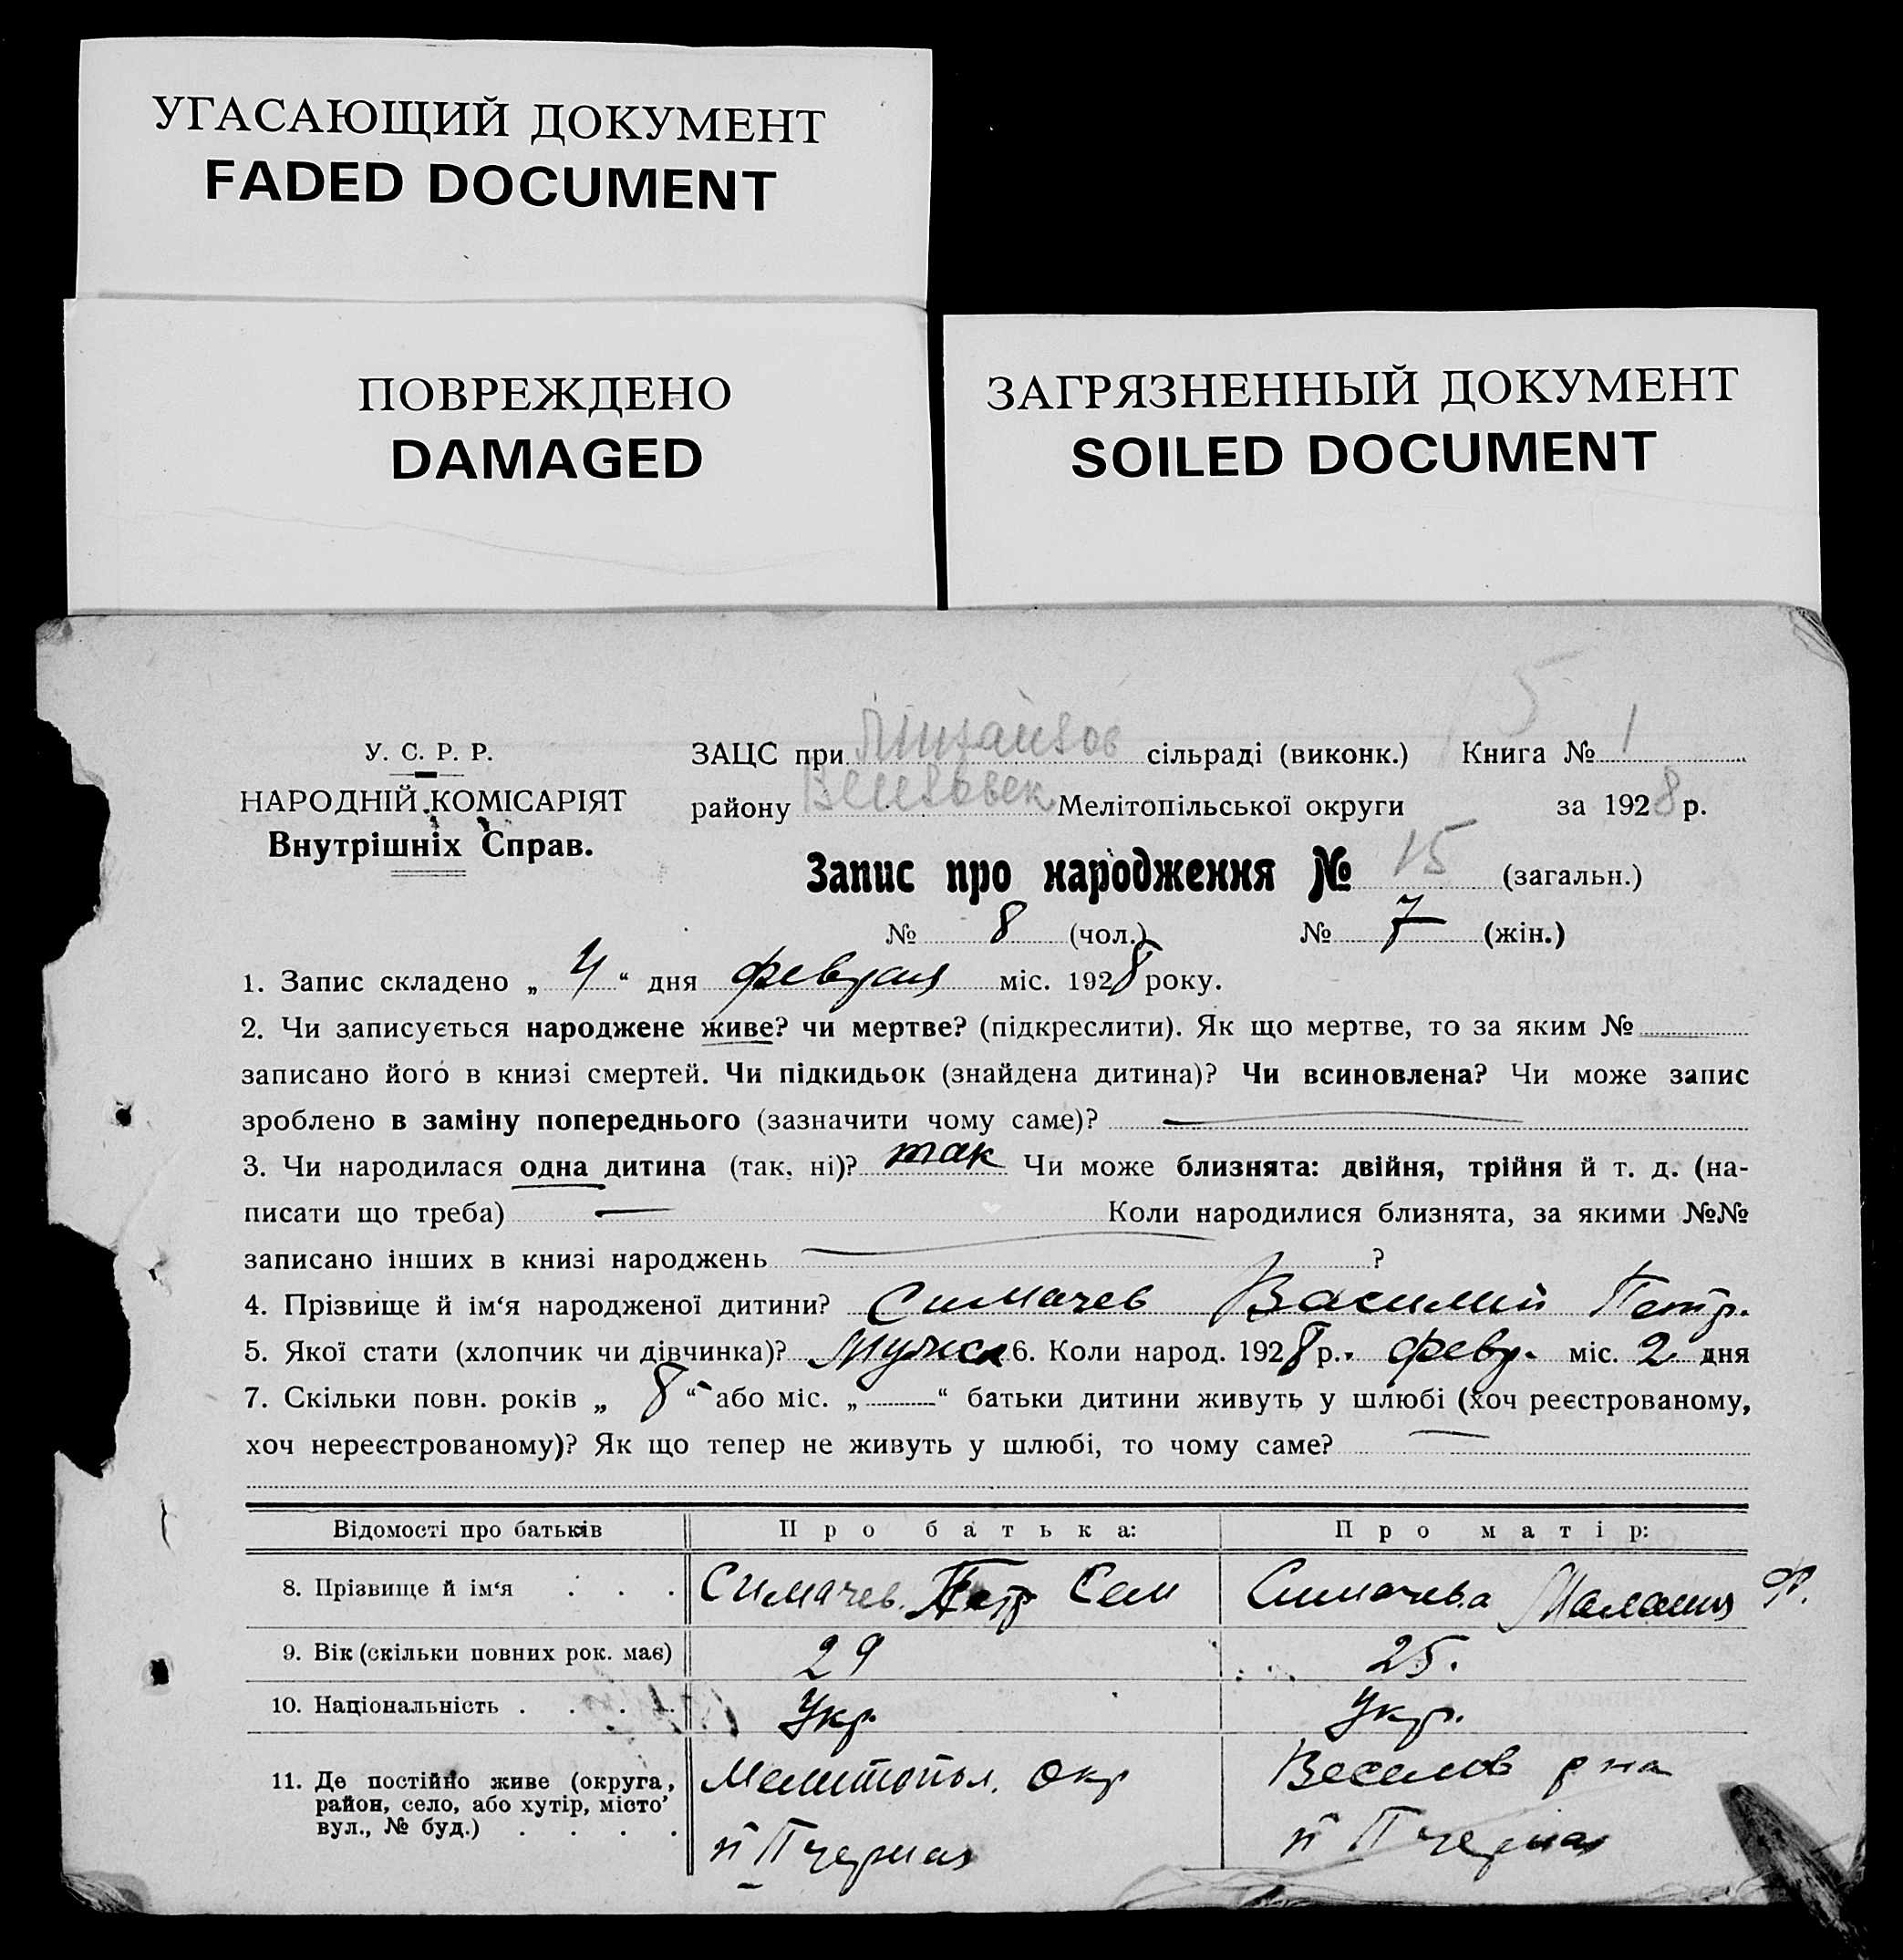 УГАСАЮЩИЙ ДОКУМЕНТ
FADED DOCUMENT
ПОВРЕЖДЕНО
DAMAGED
ЗАГРЯЗНЕННЫЙ ДОКУМЕНТ
SOILED DOCUMENT
У. С. Р. Р.
НАРОДНІЙ КОМІСАРІЯТ
Внутрішніх Справ.
ЗАЦС при сільраді (виконк.) Книга № 1
району Мелітопільської округи за 1928 р.
Запис про народження № 15 (загальн.)
№ 8 (чол.) № 7 (жін.)
1. Запис складено „ 4 “ дня февраля міс. 1928 року.
2. Чи записується народжене живе? чи мертве? (підкреслити). Як що мертве, то за яким №
записано його в книзі смертей. Чи підкидьок (знайдена дитина)? Чи всиновлена? Чи може запис
зроблено в заміну попереднього (зазначити чому саме)? —
3. Чи народилася одна дитина (так, ні)? так Чи може близнята: двійня, трійня й т. д. (на-
писати що треба) — Коли народилися близнята, за якими №№
записано інших в книзі народжень — ?
4. Прізвище й ім‘я народженої дитини? Симачев Василий Петр.
5. Якої стати (хлопчик чи дівчинка)? 6. Коли народ. 1928 р. февр. міс. 2 дня
7. Скільки повн. років „ 8 “ або міс. „ “ батьки дитини живуть у шлюбі (хоч реєстрованому,
хоч нереєстрованому)? Як що тепер не живуть у шлюбі, то чому саме? —
Відомості про батьків Про батька: Про матір:
8. Прізвище й ім‘я . . . Симачев Петр Сем Симачева Малания Ф.
9. Вік (скільки повних рок. має) 29 25.
10. Національність . . . . Укр. Укр.
11. Де постійно живе (округа, район, село, або хутір, місто, вул., № буд.) . . . . Мелитопол. окр Веселов р на
п П черная п П черная